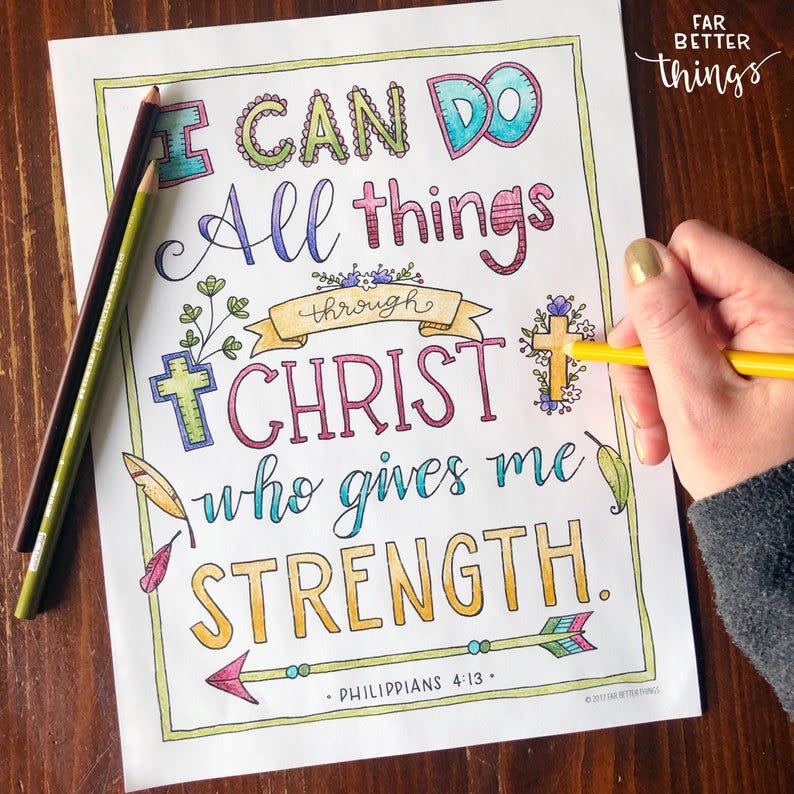 FAR
BETTER
things
I CAN DO
All things
through
CHRIST
who gives me
STRENGTH.
• PHILIPPIANS 4:13 •
© 2017 FAR BETTER THINGS